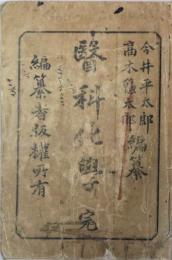 今井平太郎
高木鶴太郎 編纂
醫科化學 完
編纂者版權所有